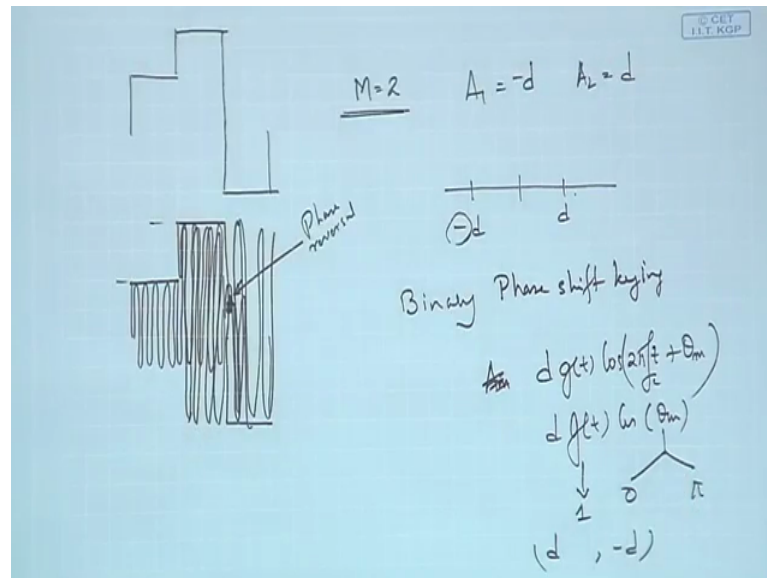 © CET
I.I.T. KGP
M=2 A₁ = -d A₂ = d
Phase
reversal
-d d
Binary Phase shift keying
d g(t) Cos(2πf_c t + θm)
d g(t) Cos (θm)
1 0 π
(d , -d)